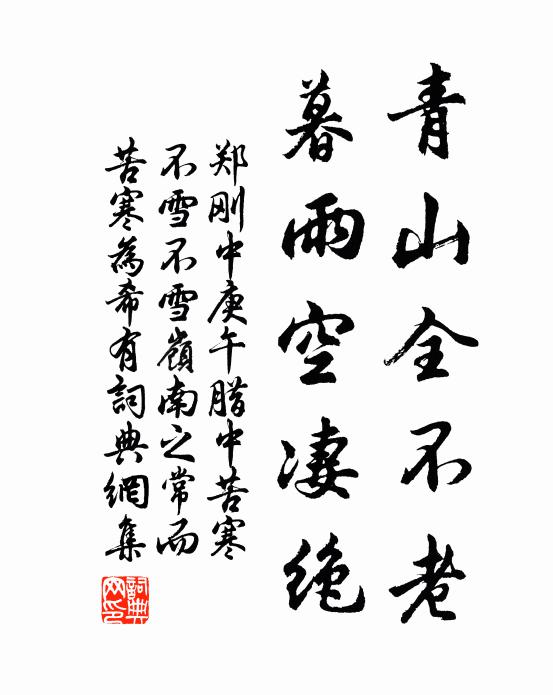 青山全不老
暮雨空凄绝
郑刚中庚午腊中苦寒
不雪不雪嶺南之常而
苦寒為希有詞典網集
詞典
网印